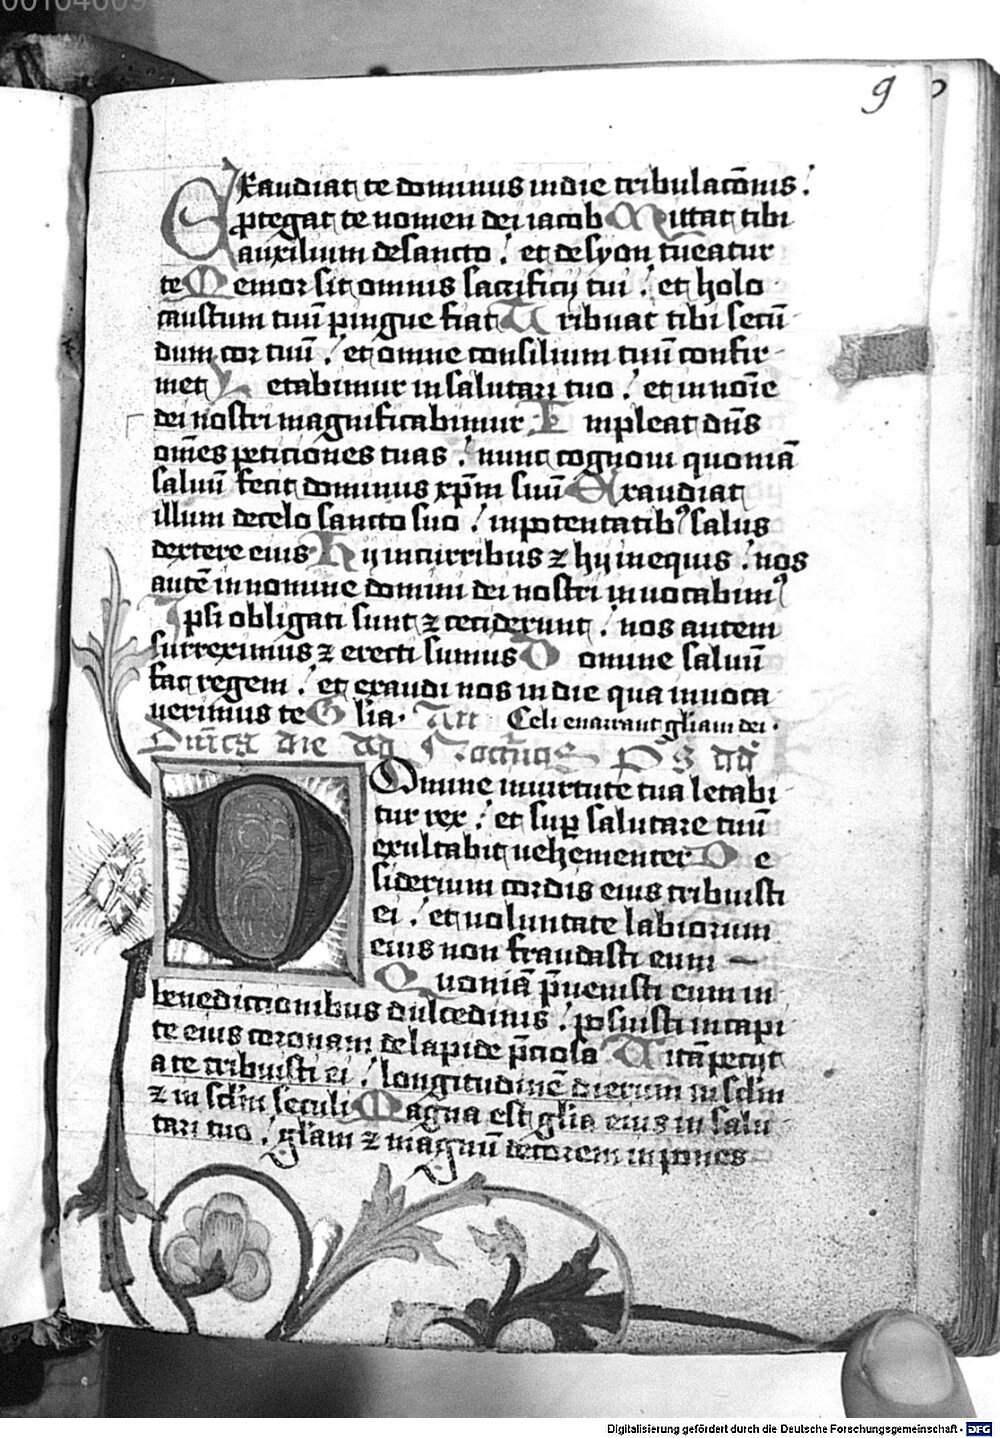 9
Exaudiat te dominus in die tribulac̄onis:
ꝓtegat te nomen dei iacob Mittat tibi
auxilium de sancto: et de syon tueatur
te Memor sit omnis sacrificij tui: et holo
caustum tuū pingue fiat Tribuat tibi secū
dum cor tuū: et omne consilium tuū confir
met Letabimur in salutari tuo: et in noīe
dei nostri magnificabimur Impleat dn̄s
om̄es peticiones tuas: nunc cognoui quoniā
saluū fecit dominus xp̄m suū Exaudiat
illum de celo sancto suo: in potentatibꝰ salus
dextere eius Hij in curribus ⁊ hij in equis: nos
autē in nomine domini dei nostri inuocabimꝰ
Ipsi obligati sunt ⁊ ceciderunt: nos autem
surreximus ⁊ erecti sumus Domine saluū
fac regem: et exaudi nos in die qua inuoca
uerimus te Glīa. Añ Celi enarrant glīam dei.
Dn̄ica die ad Nocturnos Ps dd
Domine in uirtute tua letabi
tur rex: et suꝑ salutare tuū
exultabit uehementer De
siderium cordis eius tribuisti
ei: et uoluntate labiorum
eius non fraudasti eum
Quoniā p̄uenisti eum in
benedictionibus dulcedinis: posuisti in capi
te eius coronam de lapide p̄cioso Uitā petijt
a te tribuisti ei: longitudinē dierum in sclm̄
⁊ in sclm̄ seculi Magna est glīa eius in salu
tari tuo: glīam ⁊ magnū decorem inpones
Digitalisierung gefördert durch die Deutsche Forschungsgemeinschaft - DFG